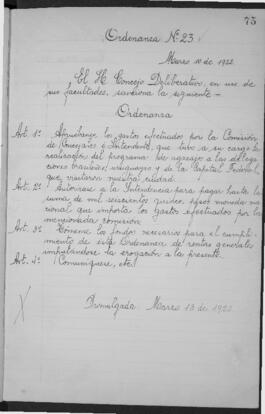 75
Ordenanza Nº 23
Marzo 10 de 1922
El H. Concejo Deliberativo, en uso de
sus facultades, sanciona la siguiente –
Ordenanza
Art. 1º Apruébanse los gastos efectuados por la Comisión
de Concejales e Intendente, que tuvo a su cargo la
realización del programa de agasajo a las delega
ciones brasileñas, uruguayas y de la Capital Federal,
que visitaron nuestra ciudad.
Art. 2º Autorízase a la Intendencia para pagar hasta la
suma de mil seiscientos quince pesos moneda na
cional que importa los gastos efectuados por la
mencionada comisión.
Art. 3º Tómense los fondos necesarios para el cumpli
miento de esta Ordenanza de rentas generales
imputándose la erogación a la presente.
Art. 4º Comuníquese, etc.
Promulgada Marzo 13 de 1922